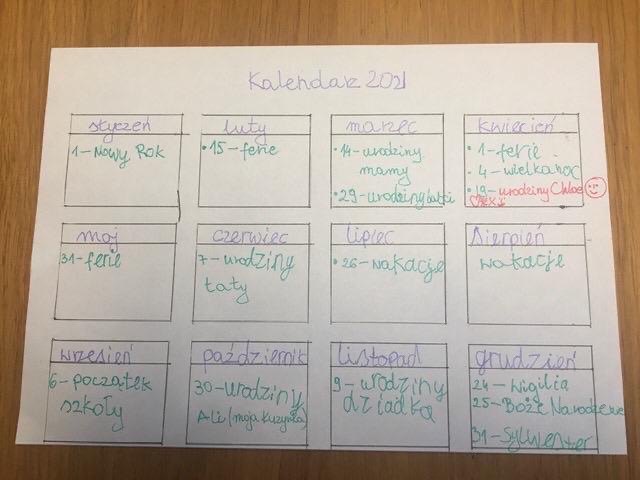 Kalendarz 2021
styczeń
1 - Nowy Rok
luty
• 15 - ferie
marzec
• 14 - urodziny
mamy
• 29 - urodziny babci
kwiecień
• 1 - ferie
• 4 - wielkanoc
• 19 - urodziny Chloe
maj
31 - ferie
czerwiec
7 - urodziny
taty
lipiec
• 26 - wakacje
Sierpień
wakacje
wrzesień
6 - początek
szkoły
październik
30 - urodziny
Ali (moja kuzynka)
listopad
9 - urodziny
dziadka
grudzień
24 - Wigilia
25 - Boże Narodzenie
31 - Sylwester